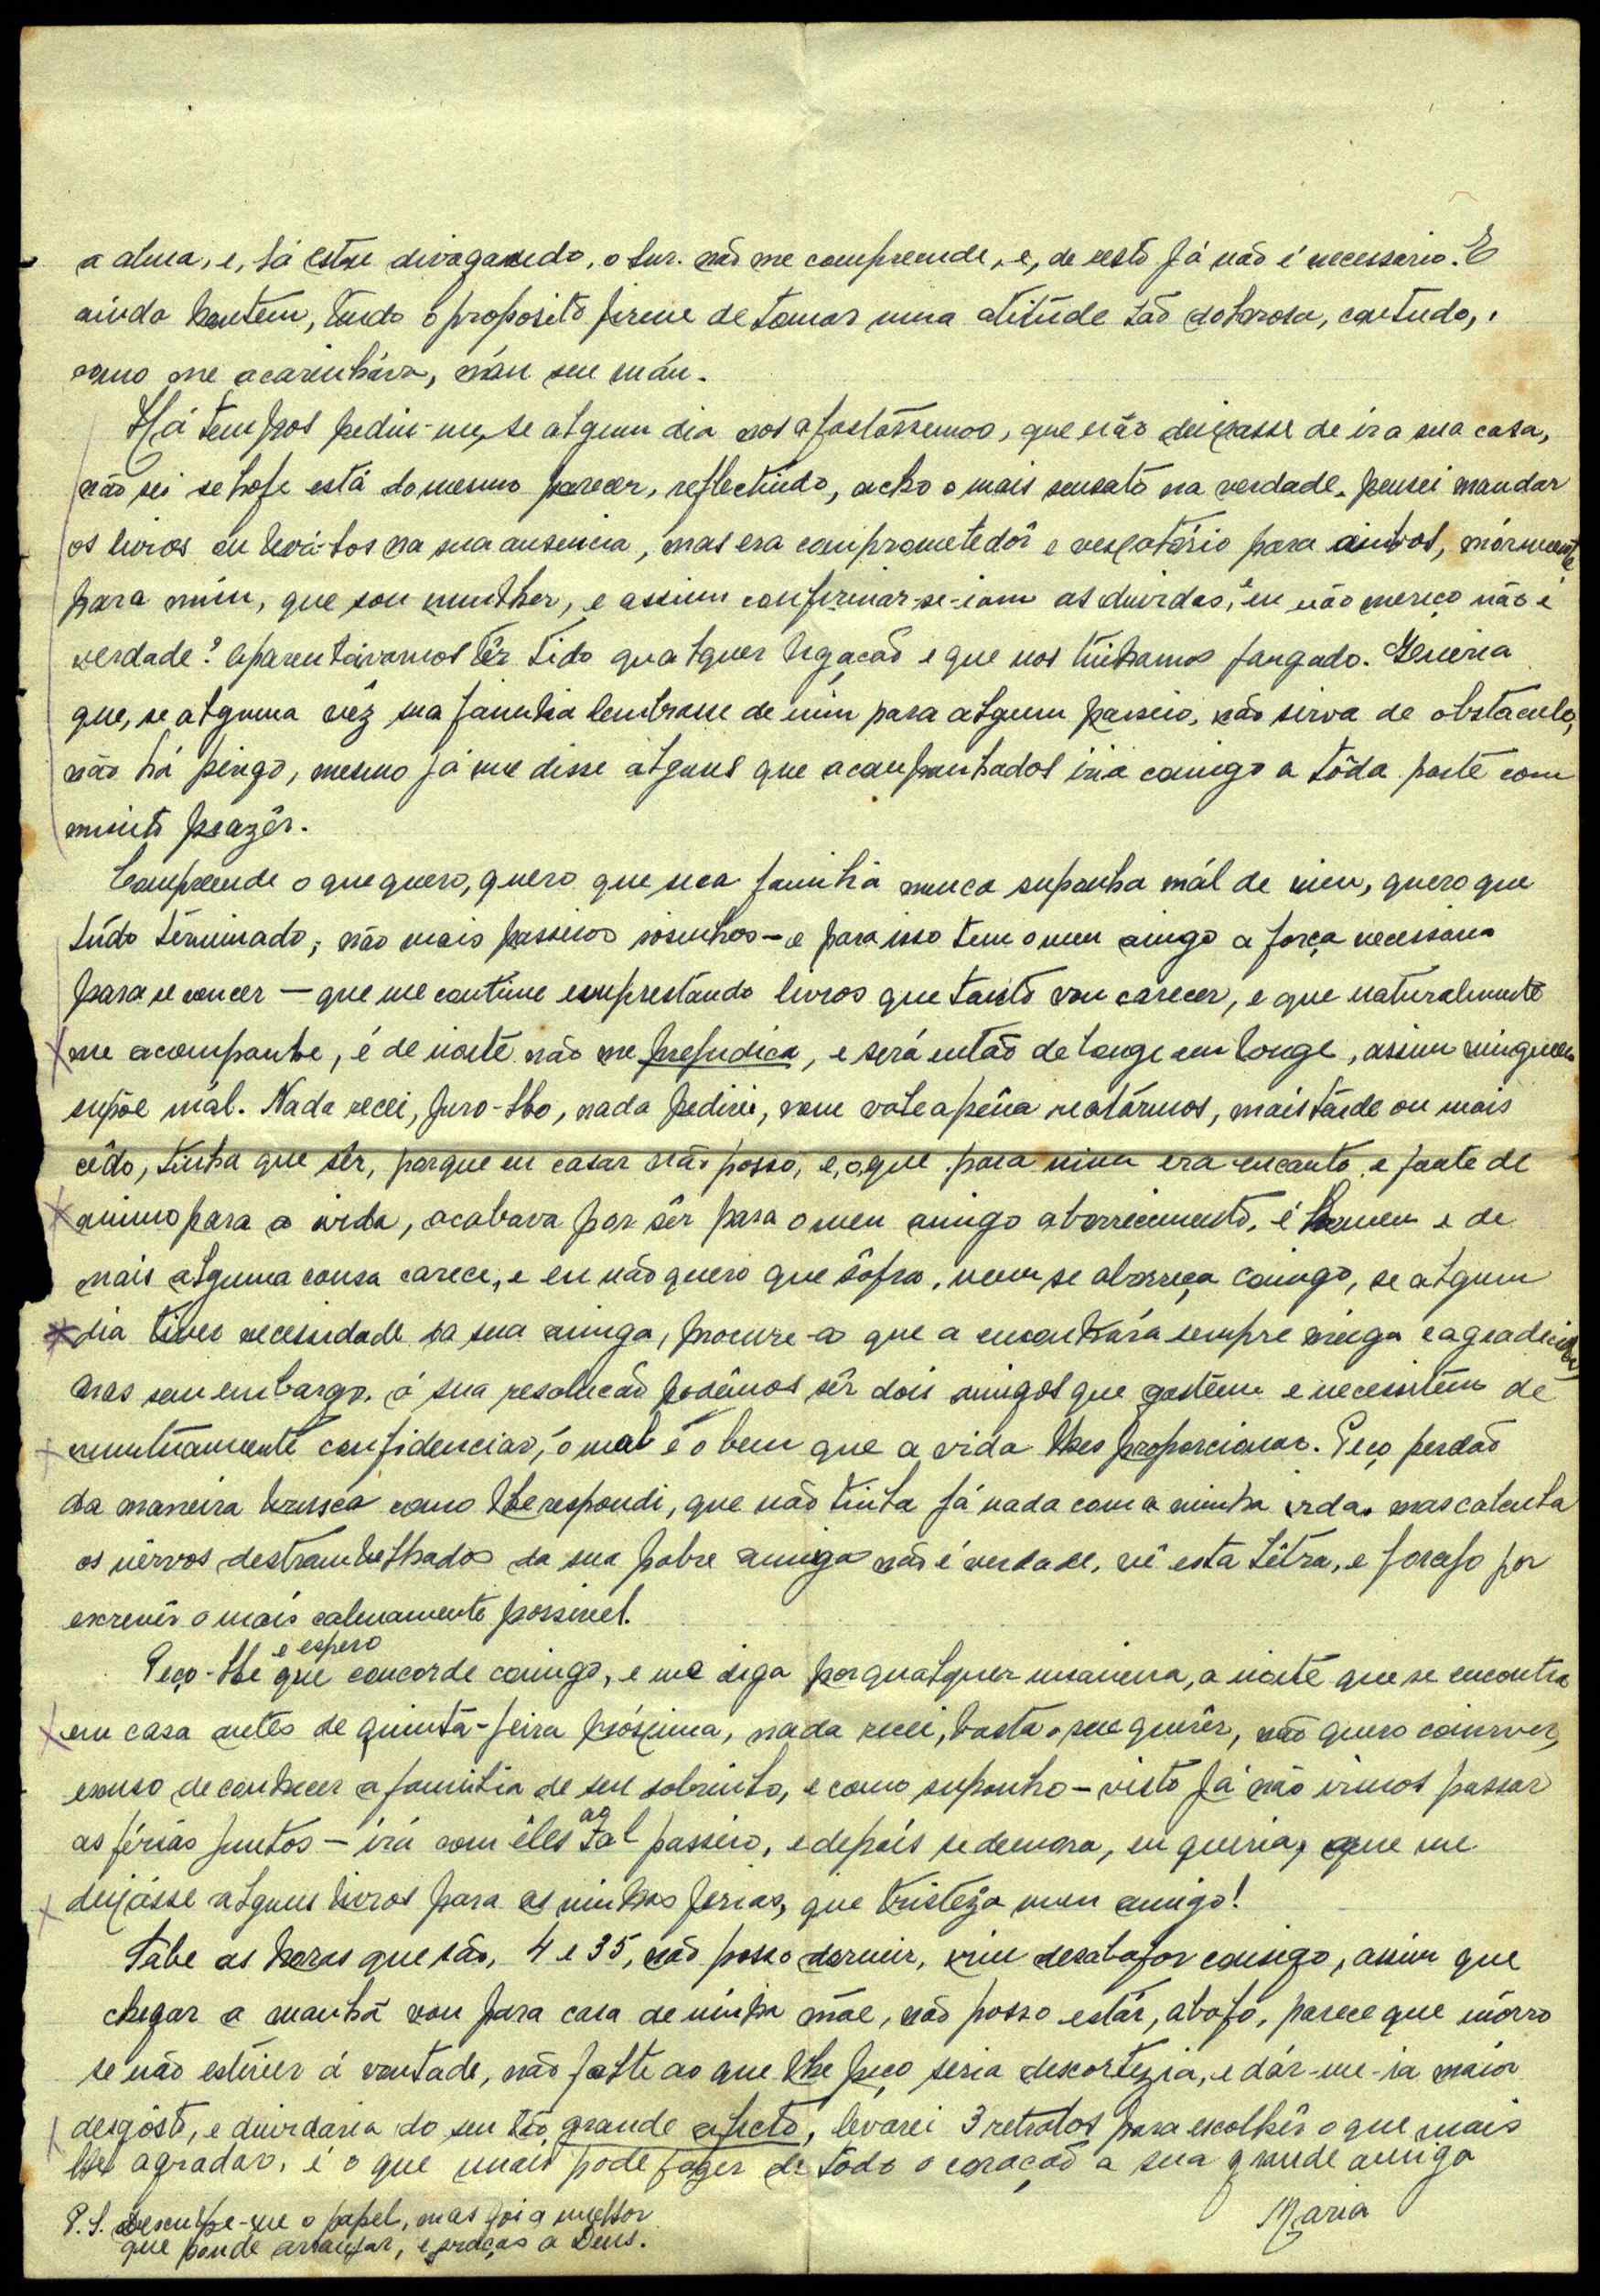 a alma, e, lá estou divagando, o Snr. não me compreende, e, de resto já não é necessario. E
ainda hontem, tendo o proposito firme de tomar uma atitude tão dolorosa, contudo,
como me acarinháva, máu seu máu.
Há tempos pediu-me, se algum dia nos afastássemos, que não deixasse de ir a sua casa,
não sei se hoje está do mesmo parecer, reflectindo, acho o mais sensato na verdade. pensei mandar
os livros ou levá-los na sua ausencia, mas era comprometedôr e vexatório para ambos, mórmente
para mim, que sou mulher, e assim confirmar-se-iam as duvidas, e eu não mereço não é
verdade? aparentávamos têr tido qualquer ligação e que nos tinhamos zangado. Queria
que, se alguma vêz sua familia lembrasse de mim para algum passeio, não sirva de obstaculo,
não há perigo, mesmo já me disse alguns que acompanhados iria comigo a tôda parte com
muito prazêr.
Compreende o que quero, quero que sua familia nunca suponha mál de mim, quero que
túdo terminado, não mais passeios sosinhos – e para isso tem o meu amigo a força necessaria
para se vencer – que me continue emprestando livros que tanto vou carecer, e que naturalmente
me acompanhe, é de noite não me prejudica, e será então de longe em longe, assim ninguem
supõe mál. Nada recei, juro-lho, nada pedirei, nem vale a pêna matármos, mais tarde ou mais
cêdo, tinha que sêr, porque eu casar não posso, e, o que para mim era encanto e fonte de
animo para a vida, acabava por sêr para o meu amigo aborrecimento, é homem e de
mais alguma cousa carece, e eu não quero que sôfra, nem se aborreça comigo, se algum
dia tiver necessidade da sua amiga, procure-a que a encontrará sempre meiga e agradecida,
mas sem embargo, á sua resolucão podêmos sêr dois amigos que gostêm e necessitêm de
mutuamente confidenciar, o mal e o bem que a vida lhes proporcionar. Peço perdão
da maneira brusca como lhe respondi, que não tinha já nada com a minha vida, mas calcula
os nêrvos destrambelhados da sua pobre amiga não é verdade, vê esta lêtra, e forcejo por
escrevêr o mais calmamente possivel.
Peço-lhe e espero que concorde comigo, e me diga por qualquer maneira, a noite que se encontra
em casa antes de quinta-feira próxima, nada recei, basta o seu querêr, não quero comover,
escuso de conhecer a familia de seu sobrinho, e como suponho – visto já não irmos passar
as férias juntos – irá com êles ao tal passeio, e depois se demora, eu queria, que me
deixásse alguns livros para as minhas ferias, que tristêza meu amigo!
Sabe as horas que são, 4 e 35, não posso dormir, vim desabafar consigo, assim que
chegar a manhã vou para casa de minha mãe, não posso estár, abafo, parece que mórro
se não estiver á vontade, não falte ao que lhe peço seria descortezia, e dár-me-ia maior
desgôsto, e duvidaria do seu tão grande afecto, levarei 3 retratos para escolhêr o que mais
lhe agradar, é o que mais pode fazer de todo o coração a sua grande amiga
Maria
P.S. Desculpe-me o papel, mas foi o melhor
que poude arranjar, e graças a Deus.